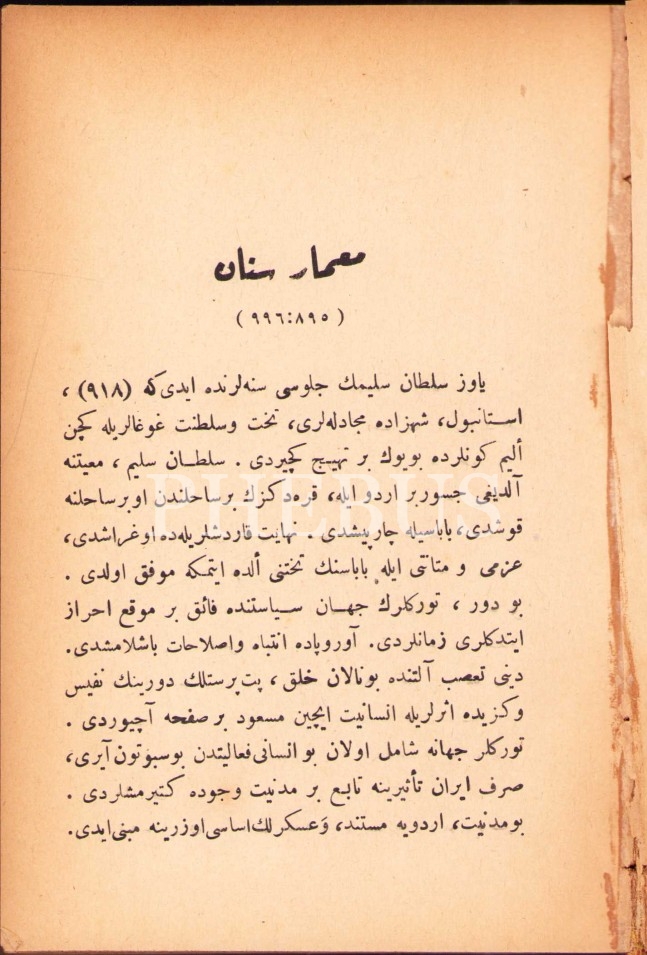 معمار سنان
(٨٩٥:٩٩٦)
ياوز سلطان سليمك جلوسى سنه‌لرنده ايدى كه (٩١٨) ،
استانبول، شهزاده مجادله‌لرى، تخت وسلطنت غوغالريله كچن
أليم كونلرده بويوك بر تهييج كچيردى . سلطان سليم ، معيتنه
آلديغى جسور بر اردو ايله، قره‌دكزك بر ساحلندن او بر ساحلنه
قوشدى، باباسيله چارپيشدى . نهايت قاردشلريله‌ده اوغراشدى،
عزمى و متانتى ايله باباسنك تختنى ألده ايتمكه موفق اولدى .
بو دور ، توركلرك جهان سياستنده فائق بر موقع احراز
ايتدكلرى زمانلردى. آوروپاده انتباه واصلاحات باشلامشدى.
دينى تعصب آلتنده بونالان خلق ، پت‌پرستلك دورينك نفيس
و كزيده اثرلريله انسانيت ايچين مسعود بر صفحه آچيوردى .
توركلر جهانه شامل اولان بو انسانى فعاليتدن بوسبوتون آيرى،
صرف ايران تأثيرينه تابع بر مدنيت وجوده كتيرمشلردى .
بو مدنيت، اردويه مستند، وَعسكرلك اساسى اوزرينه مبنى ايدى.
PHEBUS